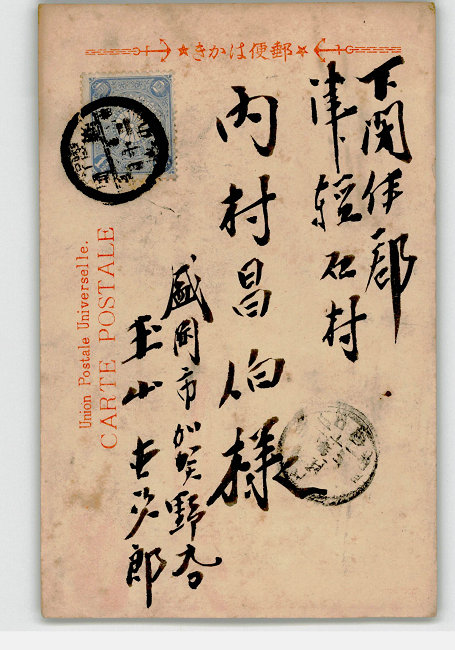 きかは便郵
下閉伊郡
津軽石村
内村昌伯様
盛岡市加賀野
玉山吉次郎
Union Postale Universelle.
CARTE POSTALE